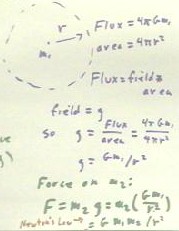 r
m₁
Flux = 4πGm₁
area = 4πr²
Flux = field × area
field = g
so g = Flux/area = 4πGm₁/4πr²
g = Gm₁/r²
Force on m₂:
F = m₂g = m₂(Gm₁/r²)
Newton's Law → = Gm₁m₂/r²